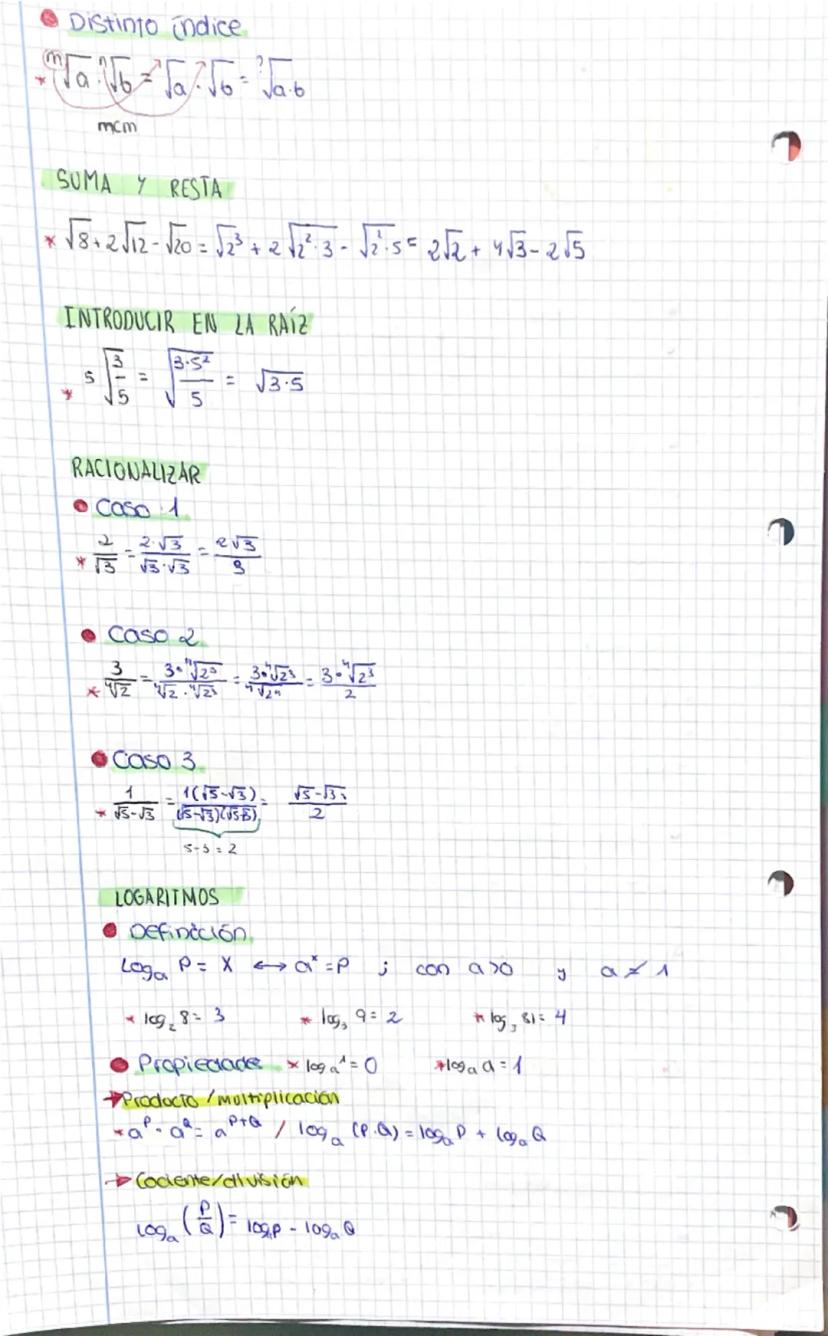 Distinto índice
* ᵐ√a · ⁿ√b = √a · √b = ?√a·b
mcm
SUMA Y RESTA
* √8 + 2√12 - √20 = √2³ + 2√2²·3 - √2²·5 = 2√2 + 4√3 - 2√5
INTRODUCIR EN LA RAÍZ
* 5√3/5 = √3·5²/5 = √3·5
RACIONALIZAR
Caso 1
* 2/√3 = 2·√3/√3·√3 = 2√3/3
Caso 2
* 3/⁴√2 = 3·⁴√2³/⁴√2·⁴√2³ = 3·⁴√2³/⁴√2⁴ = 3·⁴√2³/2
Caso 3
* 1/√5-√3 = 1(√5-√3)/(√5-√3)(√5-√3) = √5-√3/2
5-3=2
LOGARITMOS
Definición
Logₐ P = X ↔ aˣ = P ; con a>0 y a ≠ 1
* log₂ 8 = 3 * log₃ 9 = 2 * log₃ 81 = 4
Propiedades * logₐ 1 = 0 * logₐ a = 1
→ Producto / multiplicación
* aᴾ · a^Q = a^P+Q / logₐ (P·Q) = logₐ P + logₐ Q
→ Cociente/división
logₐ (P/Q) = logₐ P - logₐ Q